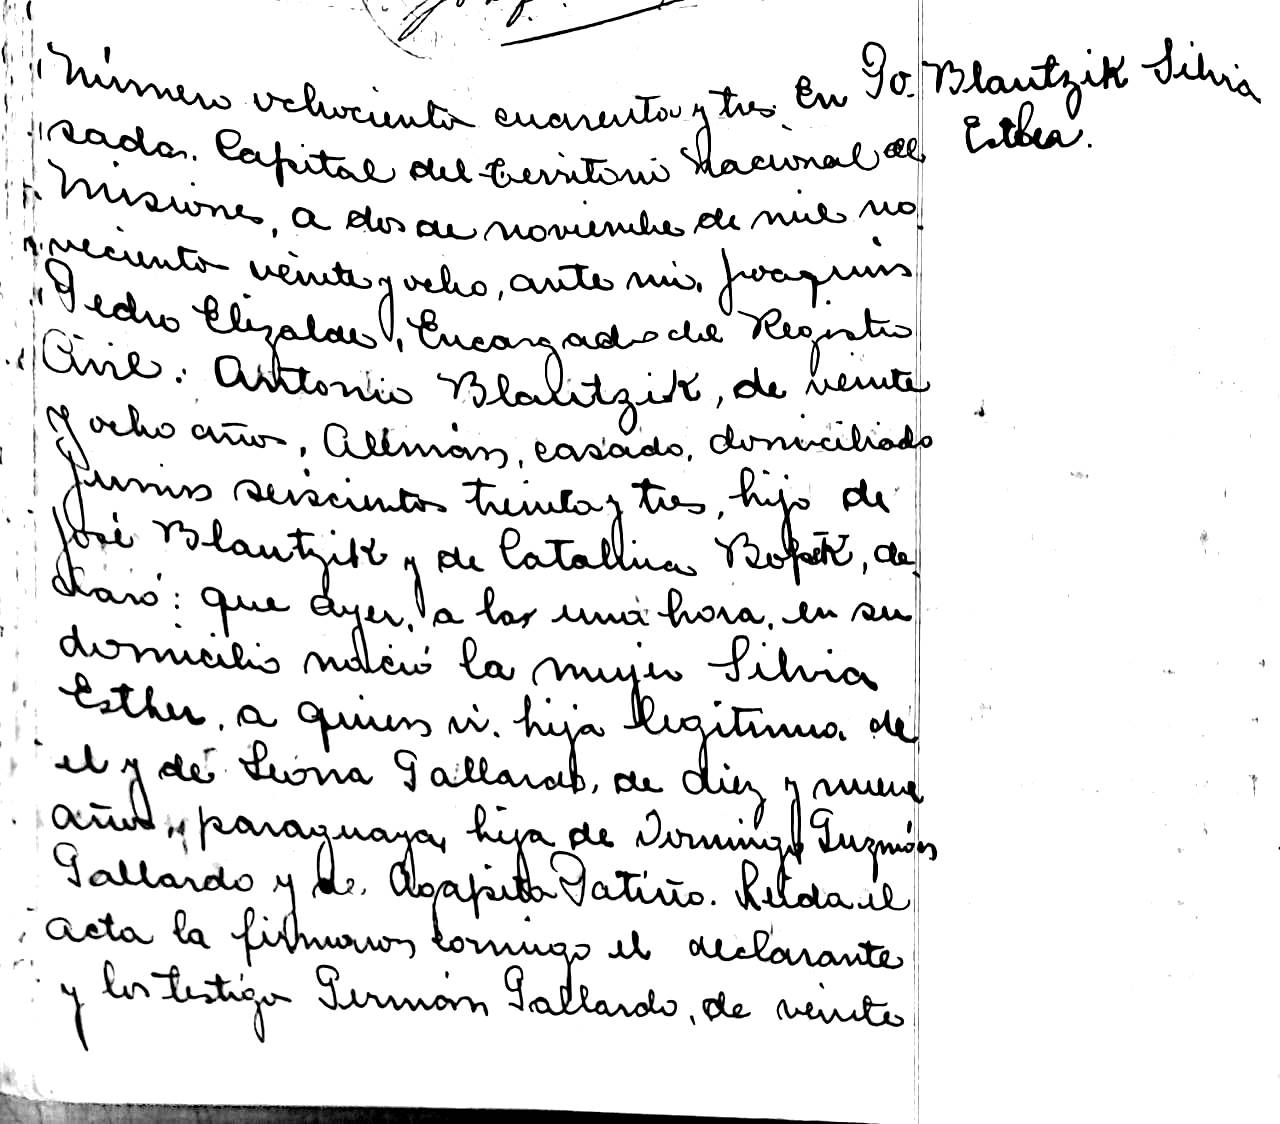 Número ochociento cuarenta y tres. En Po.
sadas. Capital del territorio Nacional de
Misiones, a dos de noviembre de mil no
veciento veinte y ocho, ante mi, Joaquin
Pedro Elizalde, Encargado del Registro
Civil: Antonio Blautzik, de veinte
y ocho años, Alemán, casado, domiciliado
Junin seiscientos treinta y tres, hijo de
José Blautzik y de Catalina Bopek, de
claró: que ayer, a las una hora, en su
domicilio nació la mujer Silvia
Esther, a quien vi. hija legitima de
el y de Leona Gallardo, de diez y nueve
años, paraguaya, hija de Domingo Guzmán
Gallardo y de Agapita Patiño. Leida el
acta la firmaron conmigo el declarante
y los testigo Germán Gallardo, de veinte
Blautzik Silvia
Esther.